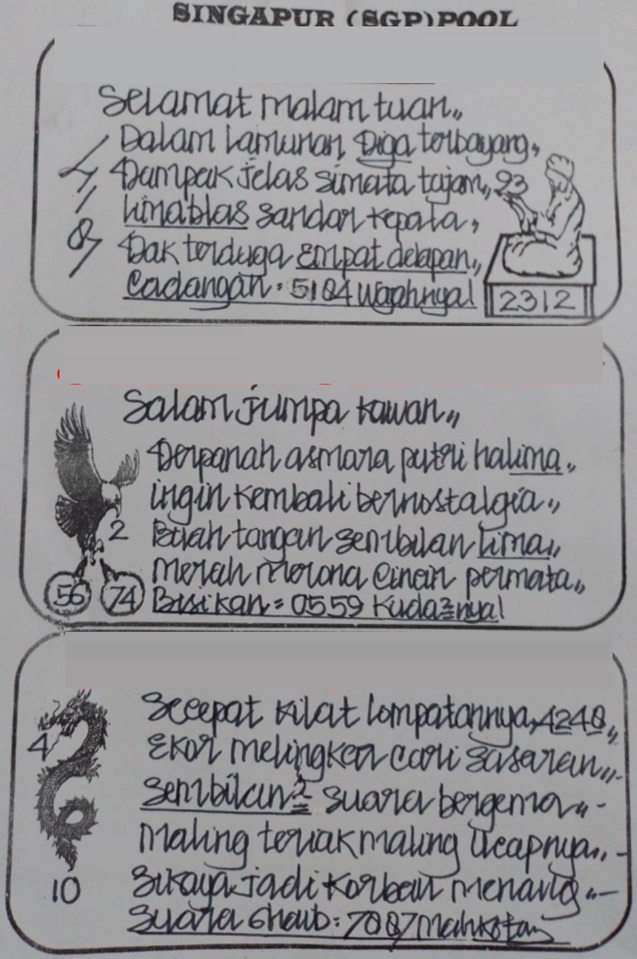 SINGAPUR (SGP) POOL
Selamat malam tuan,,
Dalam lamunan Diga terbayang,
Dampak jelas simata tajam,, 93
Limablas sandar kepala,
Dak terduga Empat delapan,,
Cadangan: 5104 wajahnya!
2312
Salam jumpa kawan,,
Derpanah asmara putri halima,,
ingin kembali bernostalgia,,
2
Buah tangan sembilan lima,,
merah merona Cincin permata,,
56 74
Bisikan = 0559 Kuda2nya!
Secepat kilat lompatannya, 4248,,
4
Ekor melingker cari sasaran,,-
sembilan2 = suara bergema,,-
maling teriak maling Ucapnya,,-
10
Sikaya jadi korban menang,,-
Suara Ghaib: 7087 mahkota